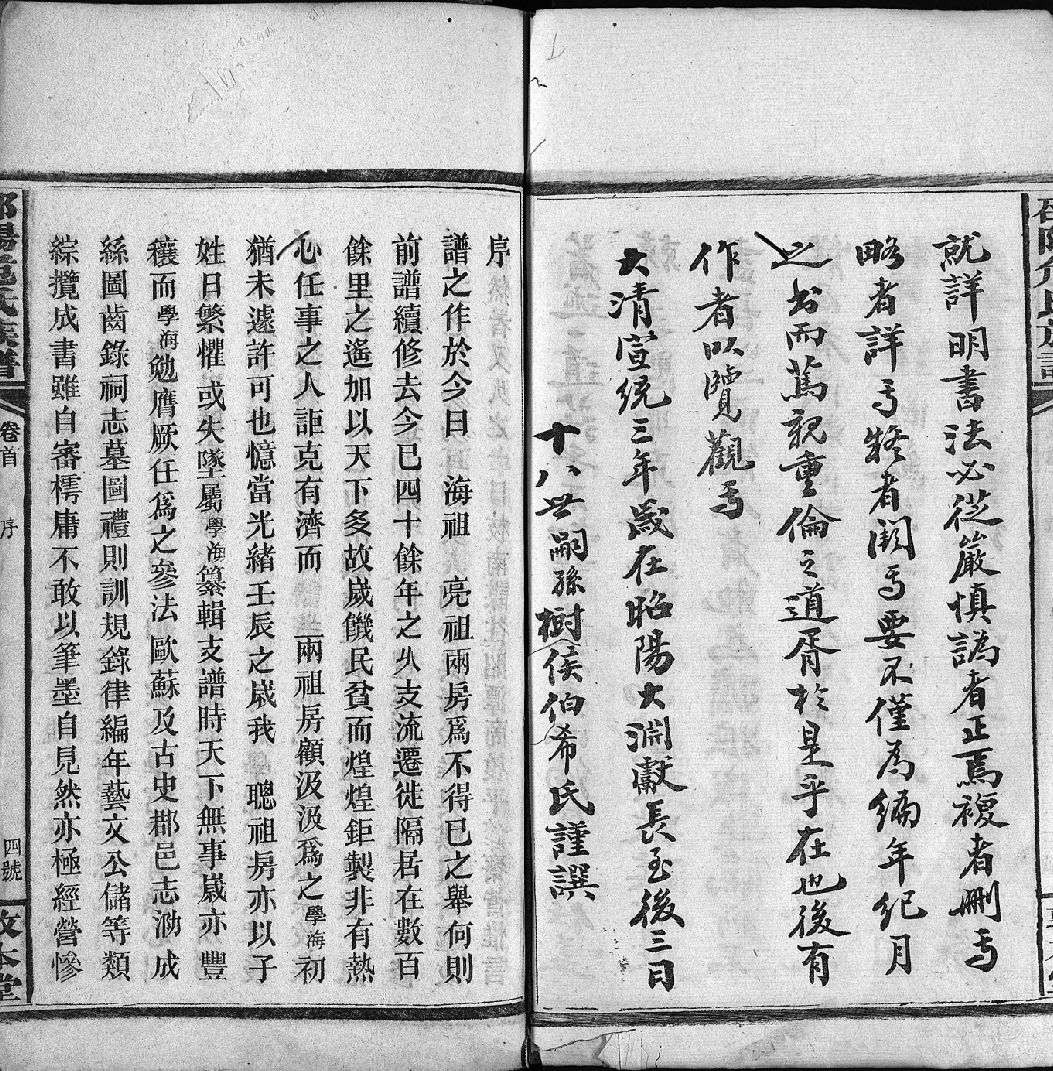 就詳明書法必從嚴慎譌者正焉複者刪焉
略者詳焉疑者闕焉要不僅為編年紀月
之書而篤親重倫之道胥於是乎在也後有
作者以覽觀焉
大清宣統三年歲在昭陽大淵獻長至後三日
十八世嗣孫樹侯伯希氏謹譔
序
譜之作於今日　海祖　亮祖兩房爲不得已之舉何則
前譜續修去今已四十餘年之久支流遷徙隔居在數百
餘里之遙加以天下多故歲饑民貧而煌煌鉅製非有熱
心任事之人詎克有濟而　兩祖房顧汲汲爲之學海初
猶未遽許可也憶當光緒壬辰之歲我　聰祖房亦以子
姓日繁懼或失墜屬學海纂輯支譜時天下無事歲亦豐
穰而學海勉膺厥任爲之參法歐蘇及古史郡邑志泐成
絲圖齒錄祠志墓圖禮則訓規錄律編年藝文公儲等類
綜攬成書雖自審樗庸不敢以筆墨自見然亦極經營慘
族譜
卷首
序
四號
敦本堂